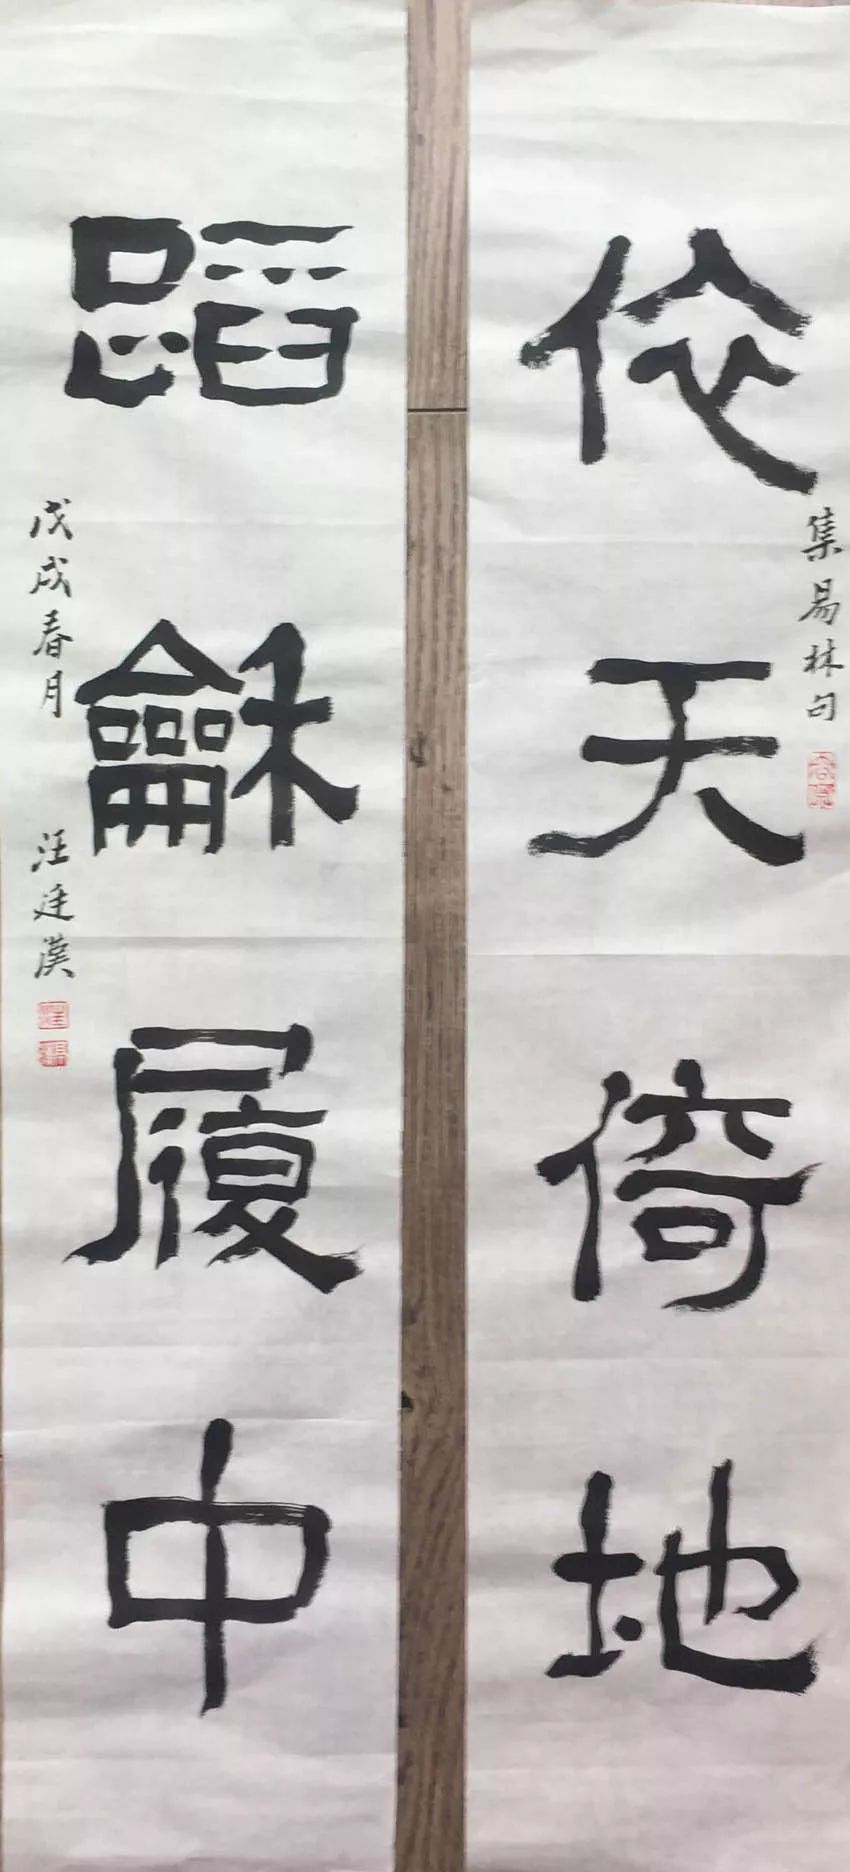 依天倚地
集易林句
蹈龢履中
戊戌春月 汪廷漢